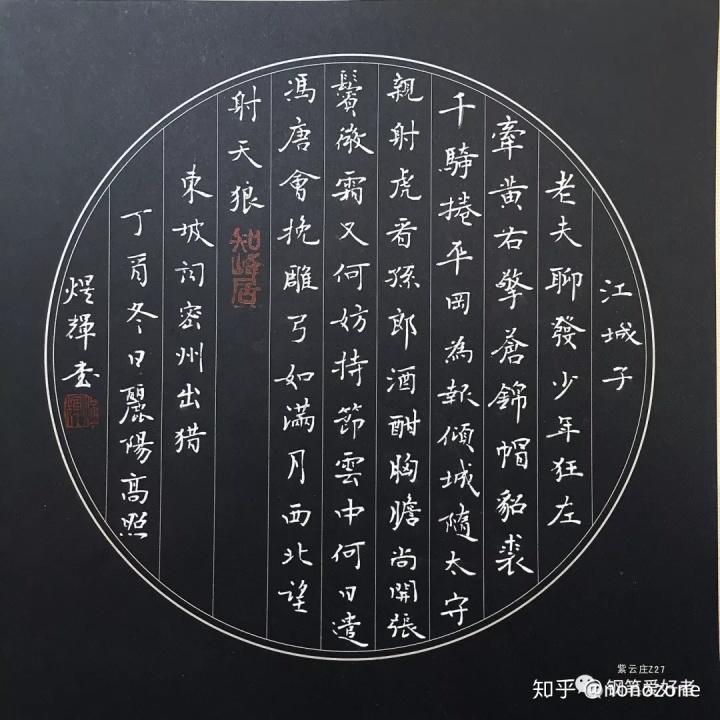 江城子
老夫聊發少年狂左
牽黄右擎蒼錦帽貂裘
千騎捲平岡為報傾城隨太守
親射虎看孫郎酒酣胸膽尚開張
鬢微霜又何妨持節雲中何日遣
馮唐會挽雕弓如滿月西北望
射天狼
知峰居
東坡詞密州出猎
丁酉冬日麗陽高照
煜輝書
紫云庄Z27
钢笔爱好者
知乎 @nonozone